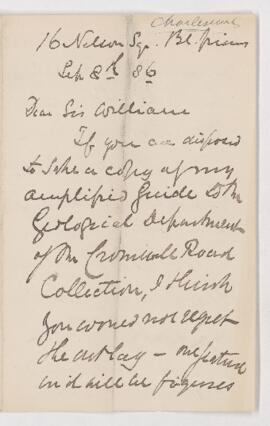 Charlesworth
16 Nelson Sqr. Bl. Friars
Sep 8th 86
Dear Sir William
If you are disposed
to take a copy of my
amplified Guide to the
Geological Department
of the Cromwell Road
Collection, I think
you would not regret
the outlay – one feature
in it will be figures